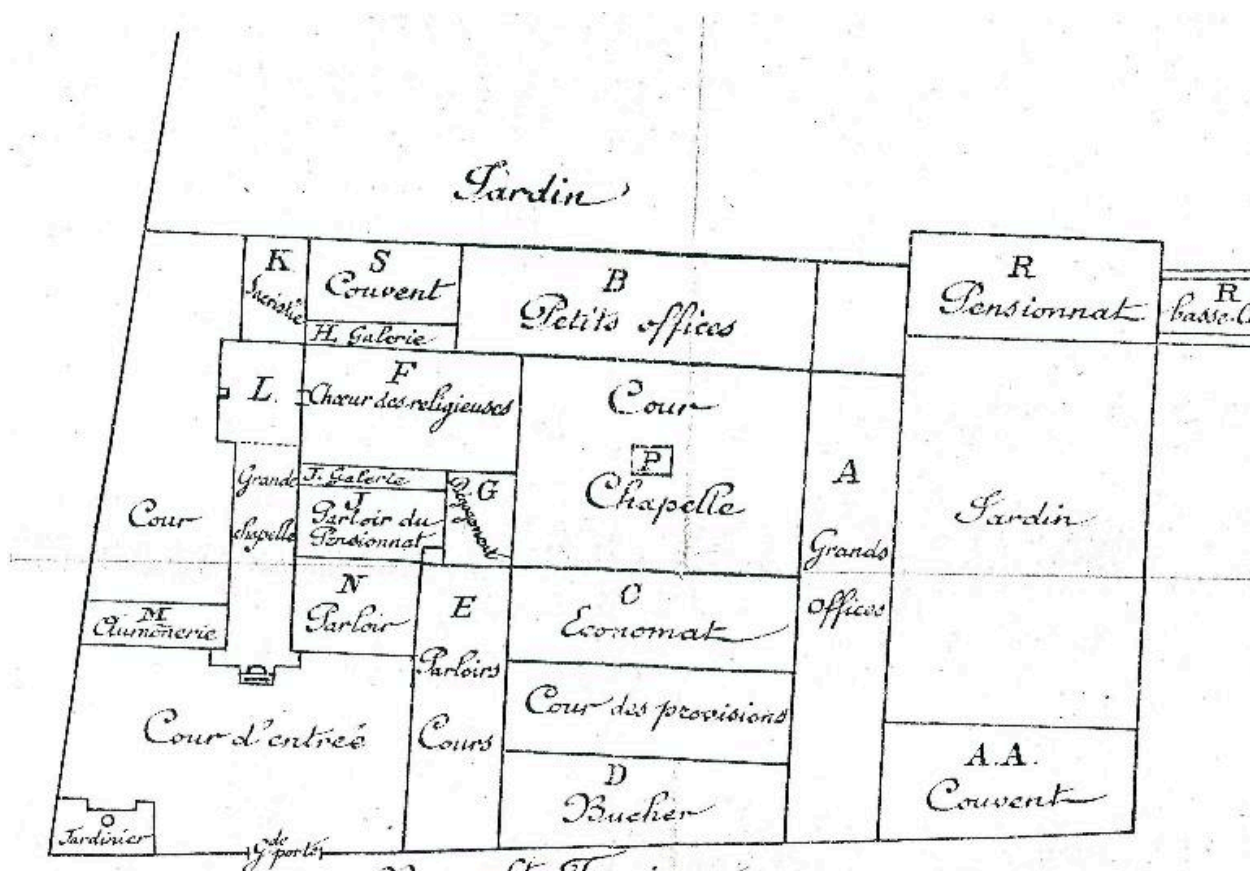 Jardin
K
Sacristie
S
Couvent
H. Galerie
B
Petits offices
R
Pensionnat
R
L.
F
Chœur des religieuses
Cour
P
Chapelle
A
Grands
offices
Jardin
Cour
Grande
chapelle
J. Galerie
J
Parloir du
Pensionnat
G
Dégagement
M
Aumônerie
N
Parloir
E
Parloirs
Cours
C
Economat
Cour des provisions
D
Bucher
A.A.
Couvent
Cour d'entrée
O
Jardinier
Gde porte